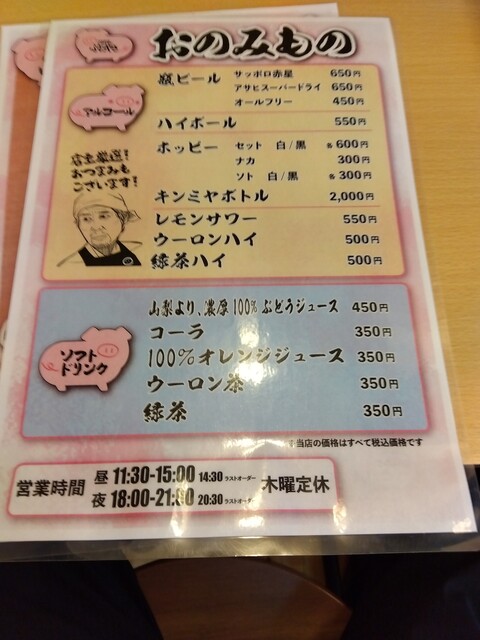 おのみもの
アルコール
瓶ビール サッポロ赤星 650円
アサヒスーパードライ 650円
オールフリー 450円
ハイボール 550円
ホッピー セット 白/黒 各600円
ナカ 300円
ソト 白/黒 各300円
キンミヤボトル 2,000円
レモンサワー 550円
ウーロンハイ 500円
緑茶ハイ 500円
店主厳選!
おつまみも
ございます!
ソフト
ドリンク
山梨より、濃厚100%ぶどうジュース 450円
コーラ 350円
100%オレンジジュース 350円
ウーロン茶 350円
緑茶 350円
※当店の価格はすべて税込価格です
営業時間 昼 11:30-15:00 14:30 ラストオーダー
夜 18:00-21:00 20:30 ラストオーダー
木曜定休